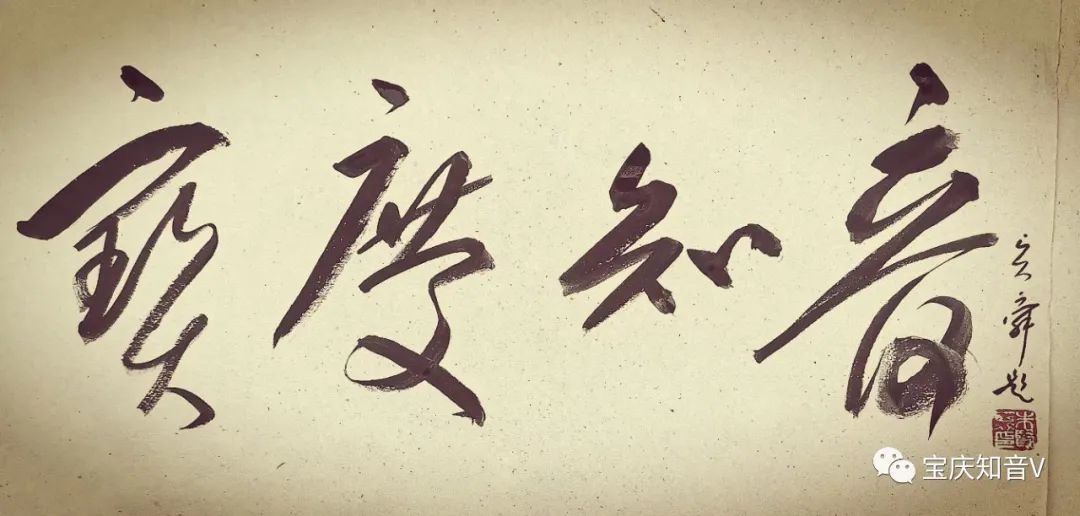 寶慶知音
题
宝庆知音V